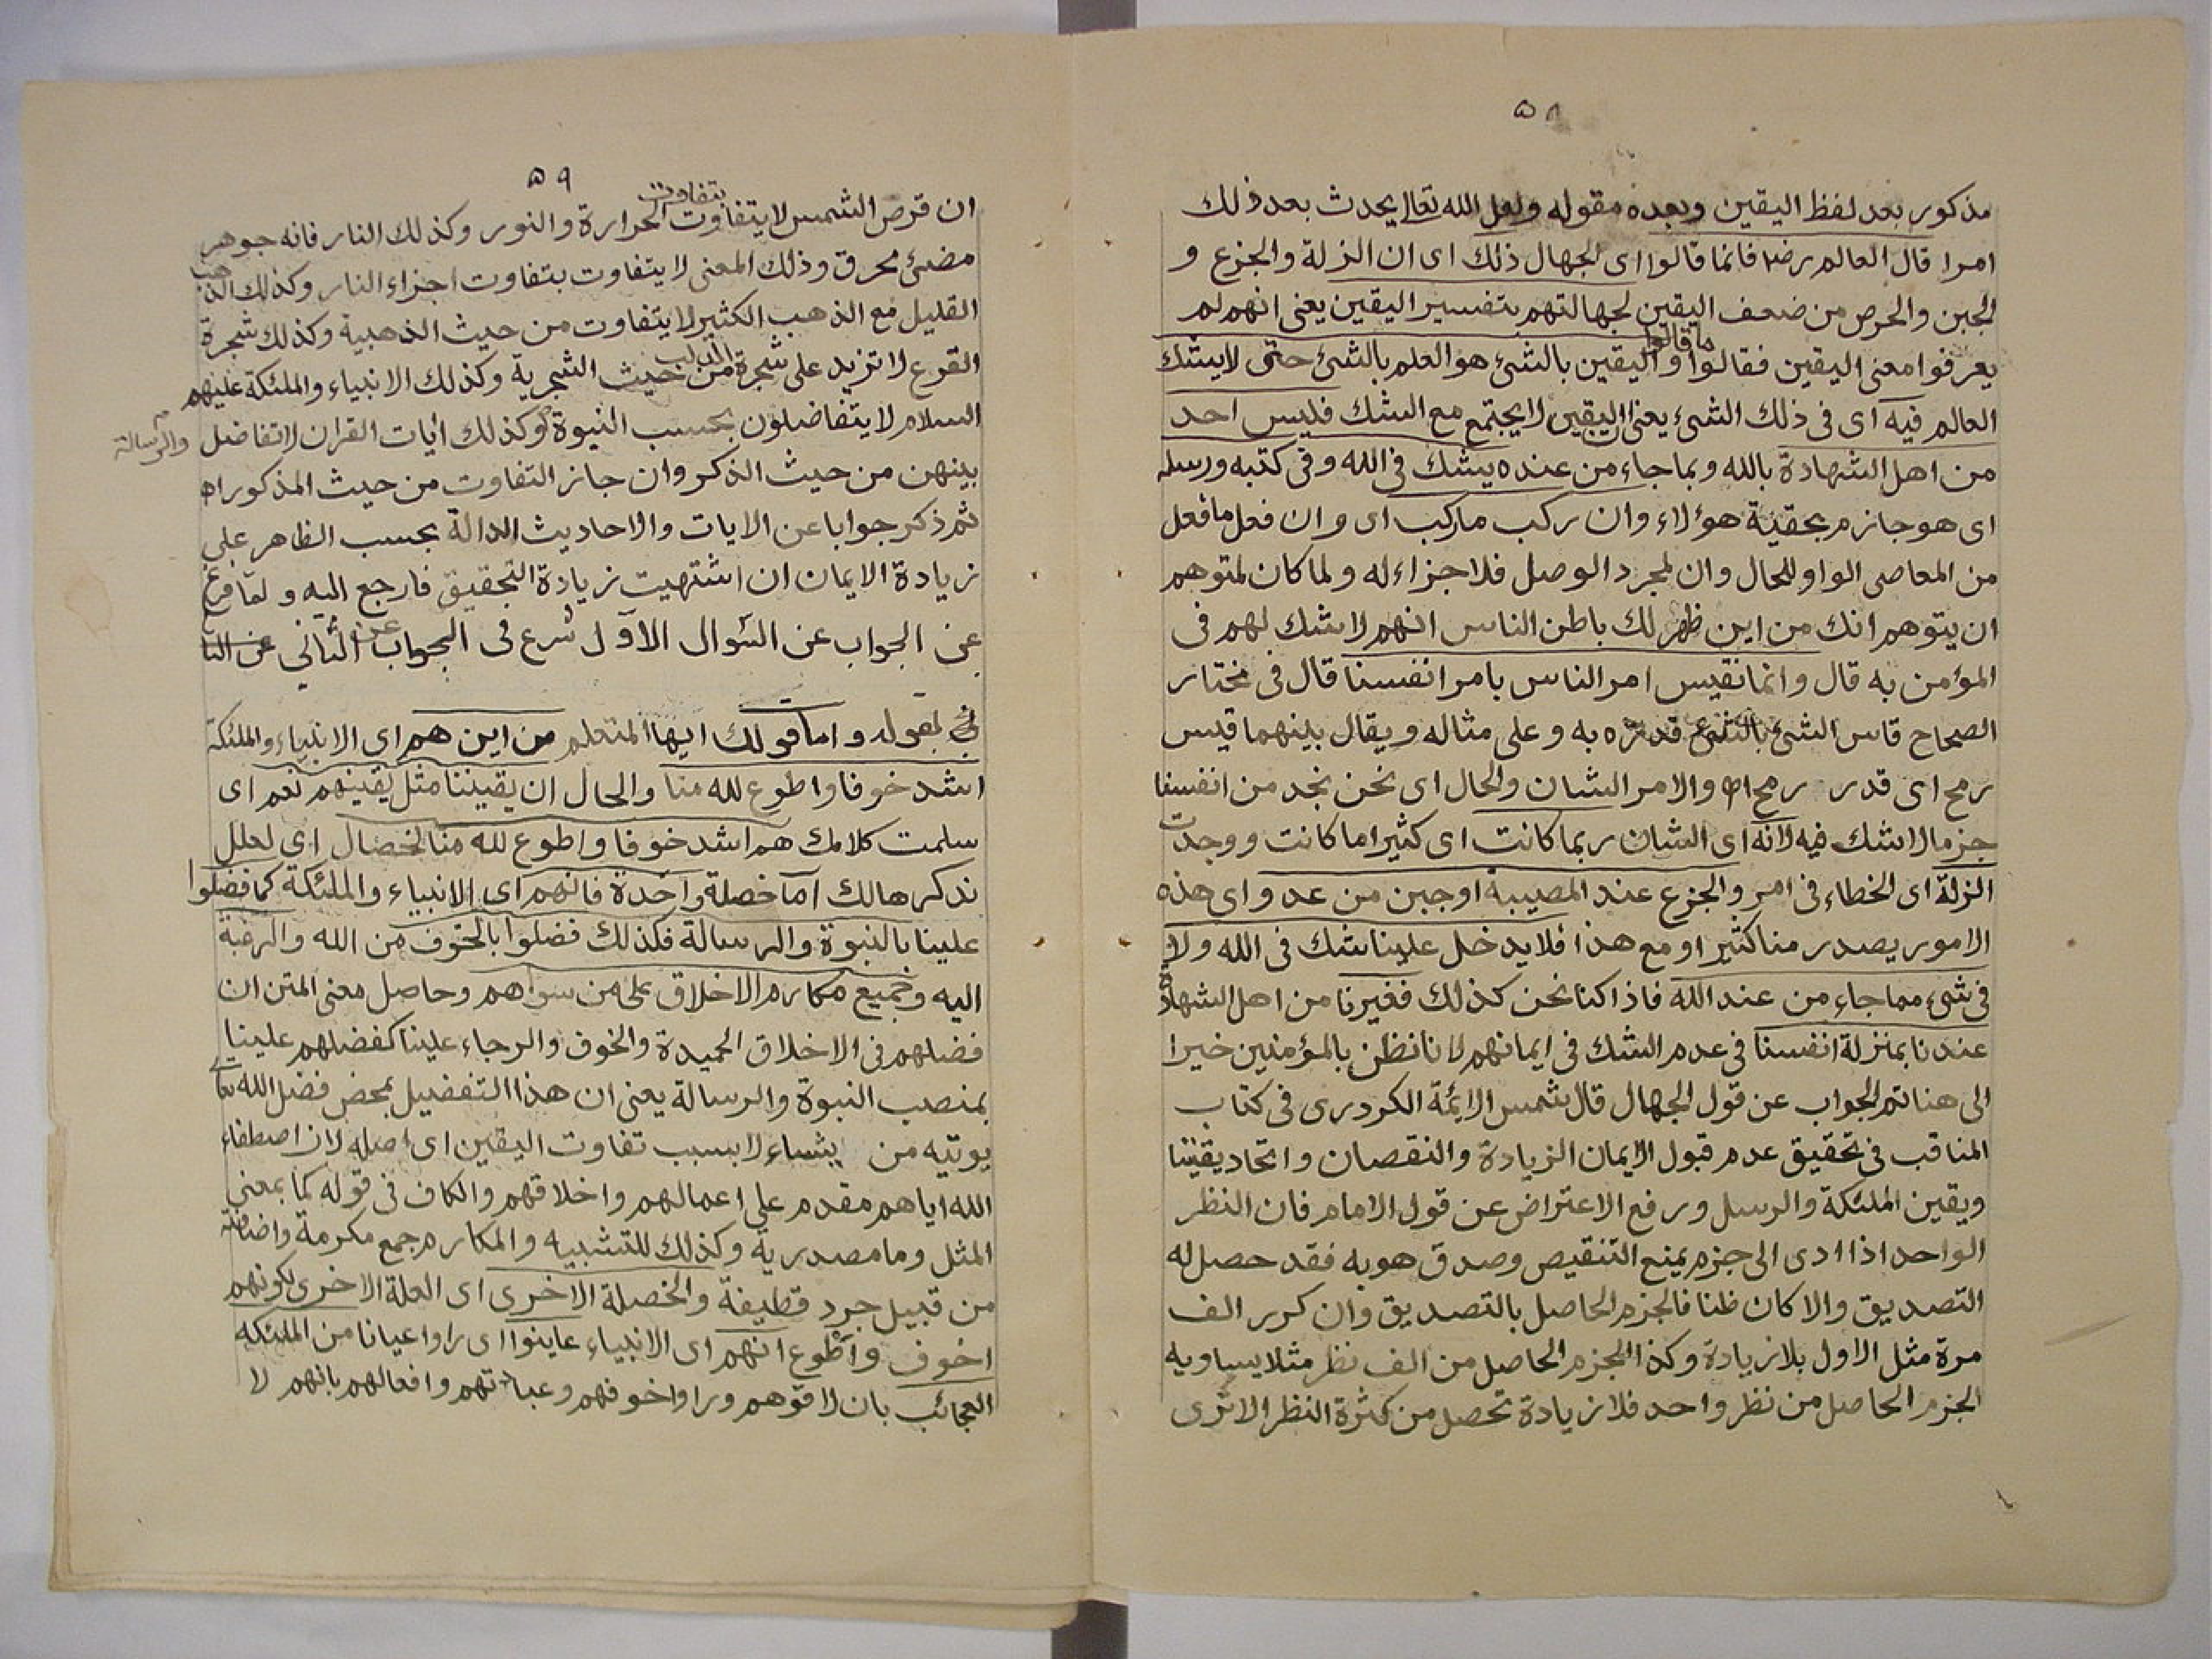 ۵۸
مذكور بعد لفظ اليقين وبعده مقوله ولعل الله تعالى يحدث بعد ذلك
امرا قال العالم رضه فانما قالوا اى الجهال ذلك اى ان الزلة والجزع و
الجبن والحرص من ضعف اليقين لجهالتهم بتفسير اليقين يعنى انهم لم
يعرفوا معنى اليقين فقالوا ما قالوا واليقين بالشئ هو العلم بالشئ حتى لا يشك
العالم فيه اى فى ذلك الشئ يعنى ان اليقين لا يجتمع مع الشك فليس احد
من اهل الشهادة بالله وبما جاء من عنده يشك فى الله وفى كتبه ورسله
اى هو جازم بحقية هؤلاء وان ركب ما ركب اى وان فعل ما فعل
من المعاصى الواو للحال وان لمجرد الوصل فلا جزاء له ولما كان لمتوهم
ان يتوهم انك من اين ظهر لك باطن الناس انهم لا شك لهم فى
المؤمن به قال وانما نقيس امر الناس بامر انفسنا قال فى مختار
الصحاح قاس الشئ بالشئ قدره به وعلى مثاله ويقال بينهما قيس
رمح اى قدر رمح اه والامر الشان والحال اى نحن نجد من انفسنا
جزما لا شك فيه لانه اى الشان ربما كانت اى كثيرا ما كانت ووجدت
الزلة اى الخطاء فى امر والجزع عند المصيبة او جبن من عدو اى هذه
الامور يصدر منا كثيرا ومع هذا فلا يدخل علينا شك فى الله ولا
فى شئ مما جاء من عند الله فاذا كنا نحن كذلك فغيرنا من اهل الشهادة
عندنا بمنزلة انفسنا فى عدم الشك فى ايمانهم لانا نظن بالمؤمنين خيرا
الى هنا تم الجواب عن قول الجهال قال شمس الايمة الكردرى فى كتاب
المناقب فى تحقيق عدم قبول الايمان الزيادة والنقصان واتحاد يقيننا
ويقين الملئكة والرسل ورفع الاعتراض عن قول الامام فان النظر
الواحد اذا ادى الى جزم يمنع التنقيص وصدق هو به فقد حصل له
التصديق والا كان ظنا فالجزم الحاصل بالتصديق وان كرر الف
مرة مثل الاول بلا زيادة وكذا الجزم الحاصل من الف نظر مثلا يساويه
الجزم الحاصل من نظر واحد فلا زيادة تحصل من كثرة النظر الا ترى
۵۹
ان قرص الشمس لا يتفاوت بتفاوت الحرارة والنور وكذلك النار فانه جوهر
مضئ محرق وذلك المعنى لا يتفاوت بتفاوت اجزاء النار وكذلك الذهب
القليل مع الذهب الكثير لا يتفاوت من حيث الذهبية وكذلك شجرة
القرع لا تزيد على شجرة الدلب من حيث الشجرية وكذلك الانبياء والملئكة عليهم
السلام لا يتفاضلون بحسب النبوة والرسالة وكذلك ايات القران لا تفاضل
بينهن من حيث الذكر وان جاز التفاوت من حيث المذكور اه
ثم ذكر جوابا عن الايات والاحاديث الدالة بحسب الظاهر على
زيادة الايمان ان اشتهيت زيادة التحقيق فارجع اليه ولما فرغ
عن الجواب عن السؤال الاول شرع فى الجواب عن الثانى عن الثا
بقوله واما قولك ايها المتعلم من اين هم اى الانبياء والملئكة
اشد خوفا واطوع لله منا والحال ان يقيننا مثل يقينهم نعم اى
سلمت كلامك هم اشد خوفا واطوع لله منا لخصال اى لعلل
نذكرها لك اما خصلة واحدة فانهم اى الانبياء والملئكة كما فضلوا
علينا بالنبوة والرسالة فكذلك فضلوا بالخوف من الله والرغبة
اليه وجميع مكارم الاخلاق على من سواهم وحاصل معنى المتن ان
فضلهم فى الاخلاق الحميدة والخوف والرجاء علينا كفضلهم علينا
بمنصب النبوة والرسالة يعنى ان هذا التفضيل بمحض فضل الله تعالى
يوتيه من يشاء لا بسبب تفاوت اليقين اى اصله لان اصطفاء
الله اياهم مقدم على اعمالهم واخلاقهم والكاف فى قوله كما بمعنى
المثل وما مصدرية وكذلك للتشبيه والمكارم جمع مكرمة واضافته
من قبيل جرد قطيفة والخصلة الاخرى اى العلة الاخرى لكونهم
اخوف واطوع انهم اى الانبياء عاينوا اى راوا عيانا من الملئكة
العجائب بان لاقوهم وراوا خوفهم وعبادتهم وافعالهم بانهم لا